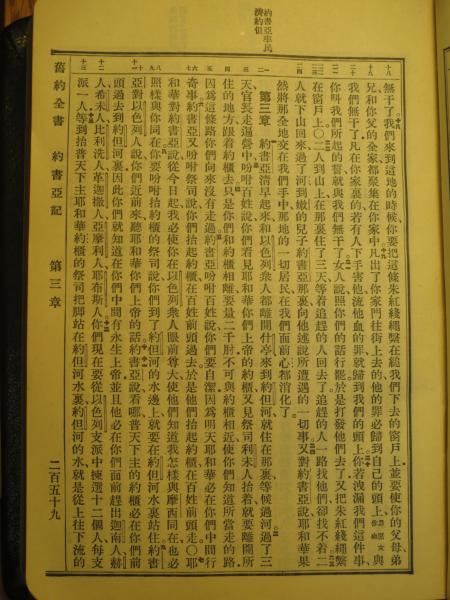 約書亞率民
濟約但
無干了我們來到這地的時候你要把這條朱紅綫繩繫在縋我們下去的窗戶上並要使你的父母弟
兄和你父的全家都聚集在你家中凡出了你家門往街上去的他的罪必歸到自己的頭上罪原文作血與
我們無干了凡在你家裏的若有人下手害他流他血的罪就歸到我們的頭上你若洩漏我們這件事
你叫我們所起的誓就與我們無干了女人說照你們的話行罷於是打發他們去了又把朱紅綫繩繫
在窗戶上〇二人到山上在那裏住了三天等着追趕的人回去了追趕的人一路找他們卻找不着二
人就下山回來過了河到嫩的兒子約書亞那裏向他述說所遭遇的一切事又對約書亞說耶和華果
然將那全地交在我們手中那地的一切居民在我們面前心都消化了
第三章 約書亞清早起來和以色列衆人都離開什亭來到約但河就住在那裏等候過河過了三
天官長走遍營中吩咐百姓說你們看見耶和華你們上帝的約櫃又見祭司利未人抬着就要離開所
住的地方跟着約櫃去只是你們和約櫃相離要量二千肘不可與約櫃相近使你們知道所當走的路
因爲這條路你們向來沒有走過約書亞吩咐百姓說你們要自潔因爲明天耶和華必在你們中間行
奇事約書亞又吩咐祭司說你們抬起約櫃在百姓前頭過去於是他們抬起約櫃在百姓前頭走〇耶
和華對約書亞說從今日起我必使你在以色列衆人眼前尊大使他們知道我怎樣與摩西同在也必
照樣與你同在你要吩咐抬約櫃的祭司說你們到了約但河的水邊上就要在約但河水裏站住約書
亞對以色列人說你們近前來聽耶和華你們上帝的話約書亞說看哪普天下主的約櫃必在你們前
頭過去到約但河裏因此你們就知道在你們中間有永生上帝並且他必在你們面前趕出迦南人赫
人希未人比利洗人革迦撒人亞摩利人耶布斯人你們現在要從以色列支派中揀選十二個人每支
派一人等到抬普天下主耶和華約櫃的祭司把脚站在約但河水裏約但河的水就是從上往下流的
舊約全書 約書亞記 第三章 二百五十九